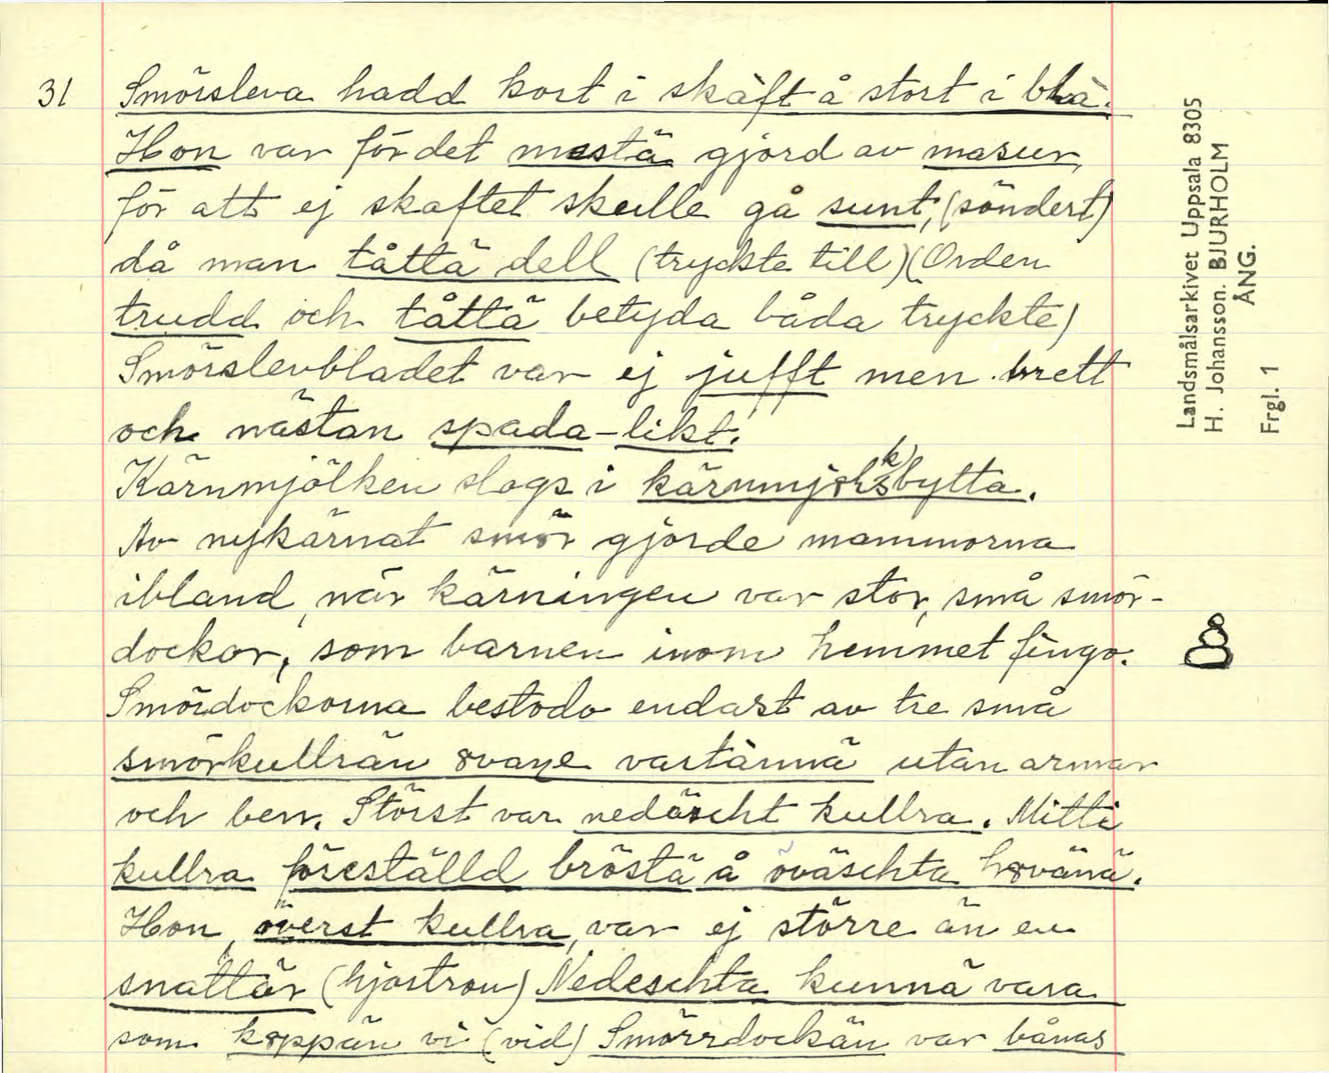 31
Smörsleva hadd kort i skàft å stort i blà.
Hon var för det mestä gjord av masur,
för att ej skaftet skulle gå sunt, (söndert)
då man tåttä dell (tryckte till) (Orden
trudd och tåttä betyda båda tryckte)
Smörslevbladet var ej jufft men brett
och nästan spada-likt.
Kärnmjölken slogs i kärnmjȣlksbytta.
Av nykärnat smör gjorde mammorna
ibland, när kärningen var stor, små smör-
dockor, som barnen inom hemmet fingo.
Smördockorna bestodo endast av tre små
smörkullrän ȣvaye vartännä utan armar
och ben. Störst var nedäscht kullra. Mitti
kullra föreställd bröstä å öväschta hȣvänä.
Hon, överst kullra, var ej större än en
snattär (hjortron) Nedeschta kunnä vara
som kȣppän vi (vid) Smörrdockän var bånas
Landsmålsarkivet Uppsala 8305
H. Johansson. BJURHOLM
ÅNG.
Frgl. 1